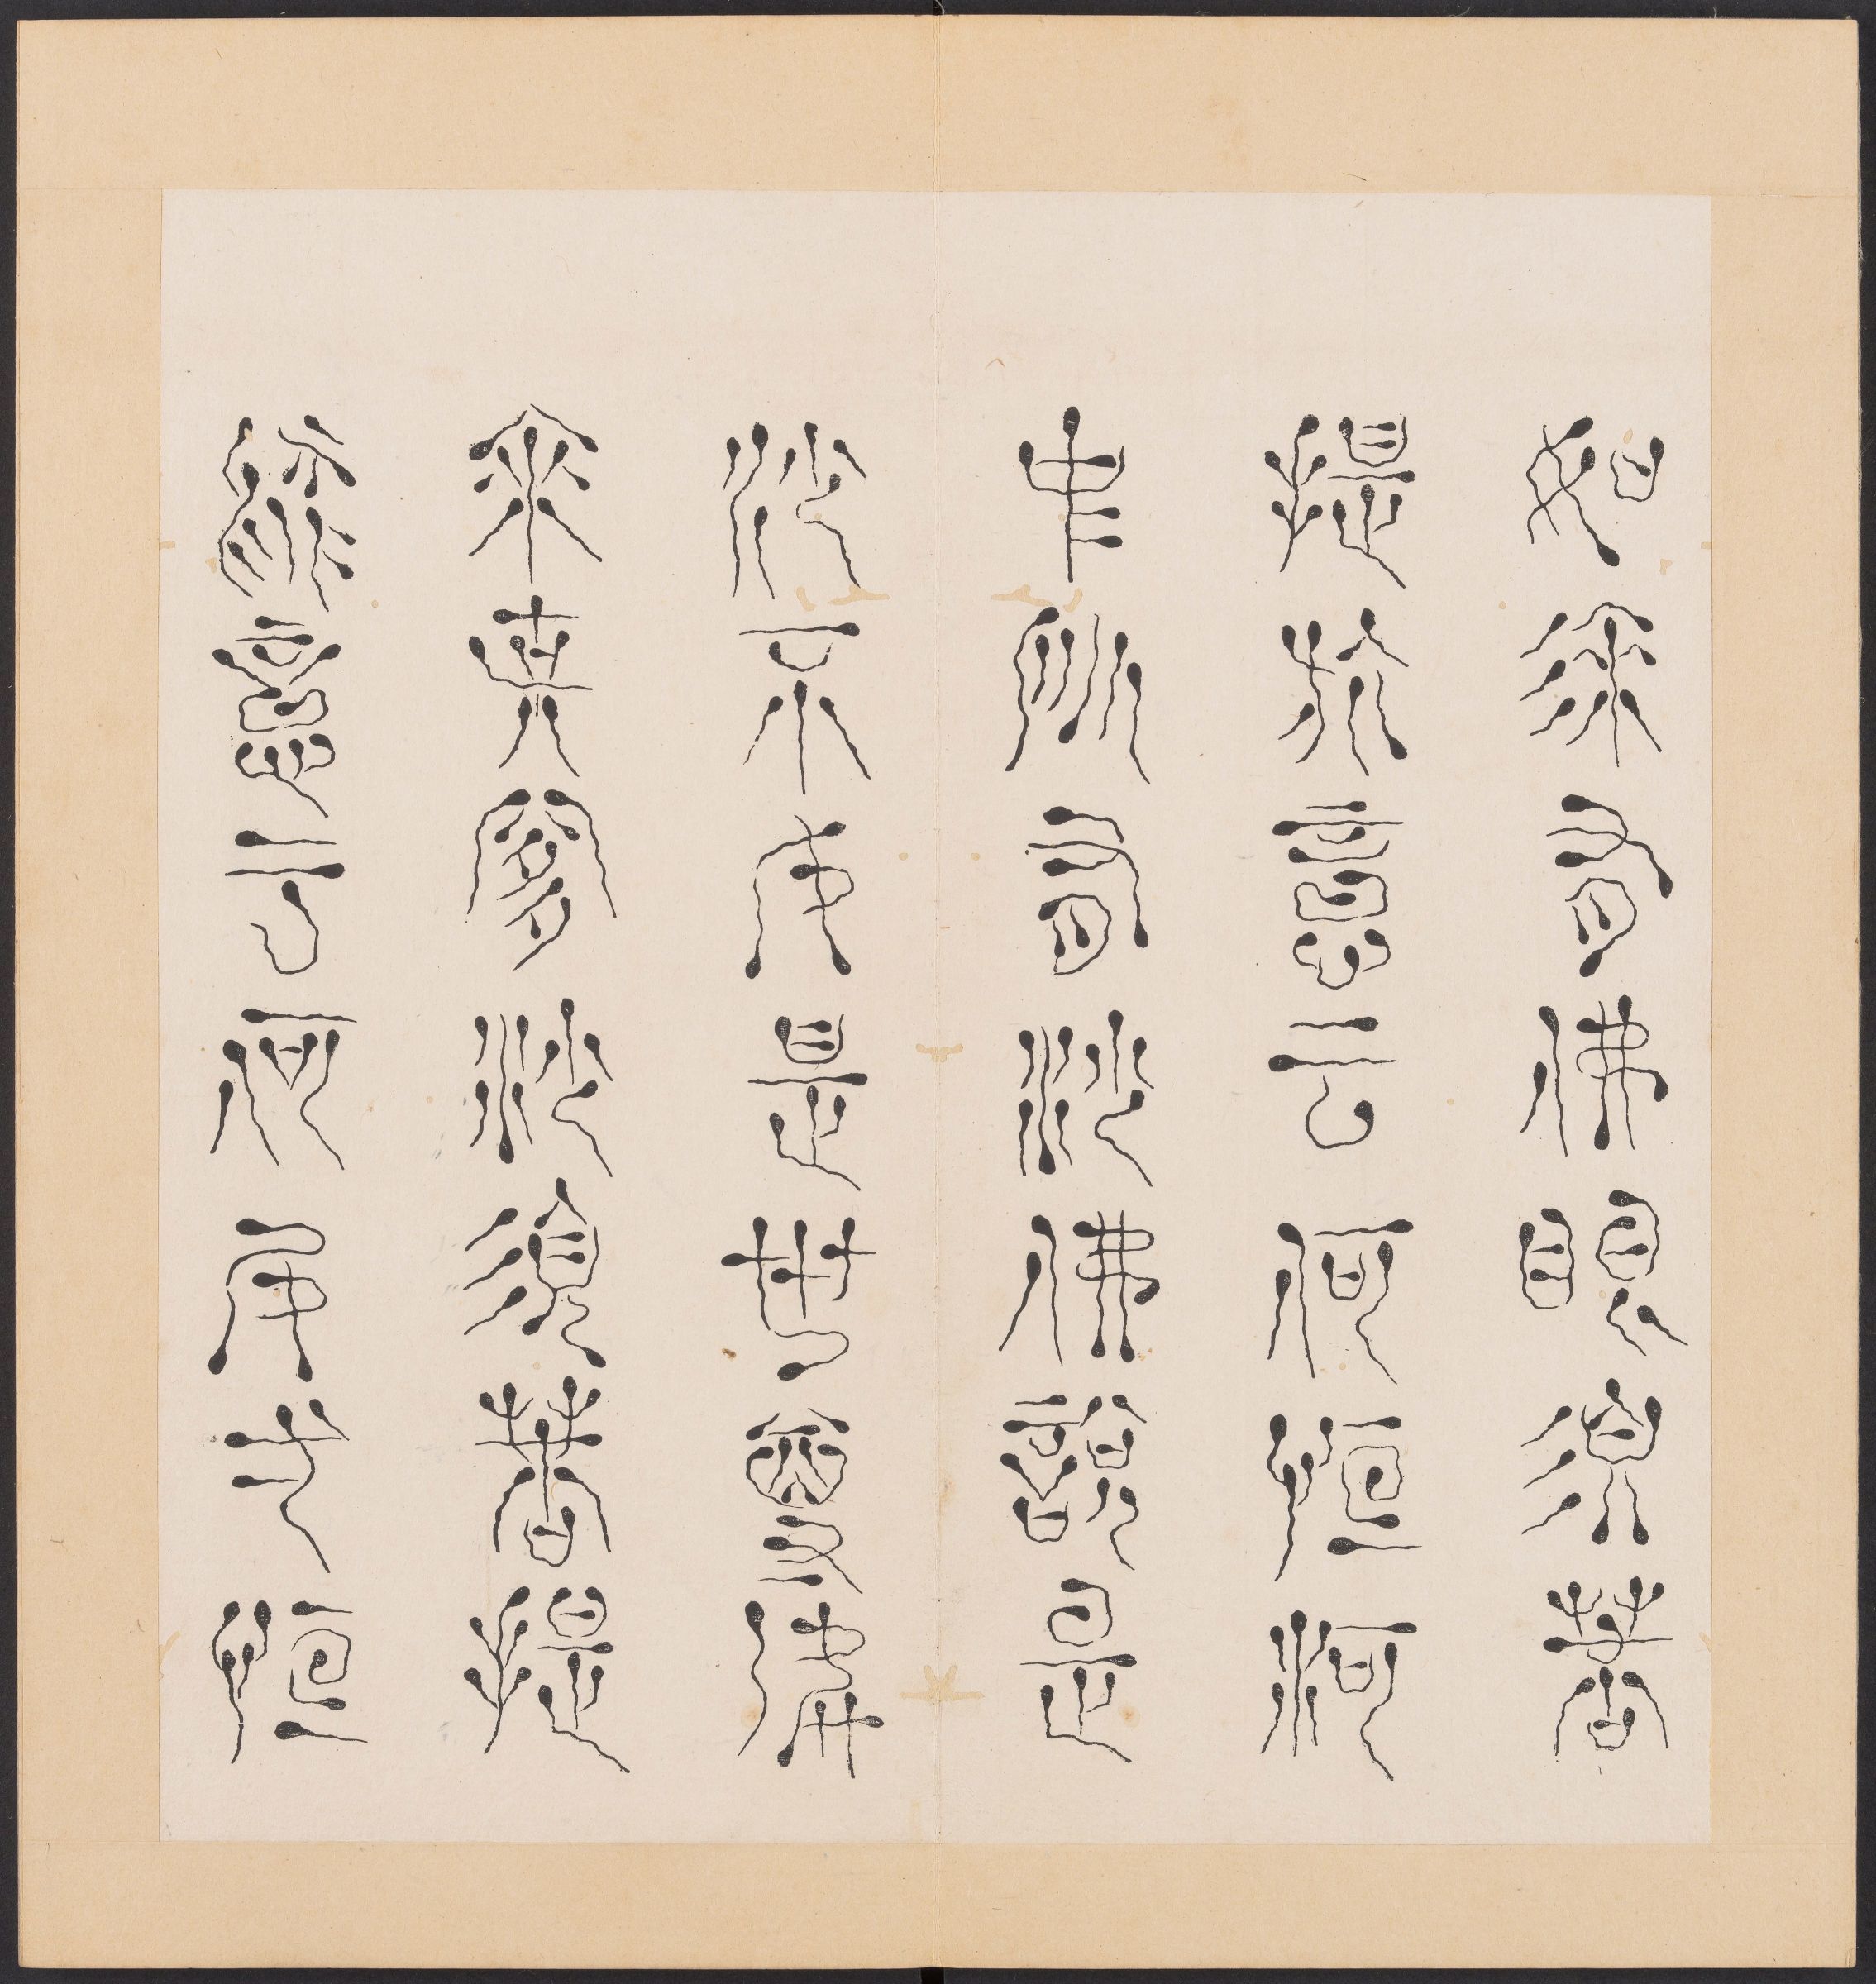 如來有佛眼須菩
提於意云何恒河
中所有沙佛說是
沙不如是世尊如
來說是沙須菩提
於意云何如一恒